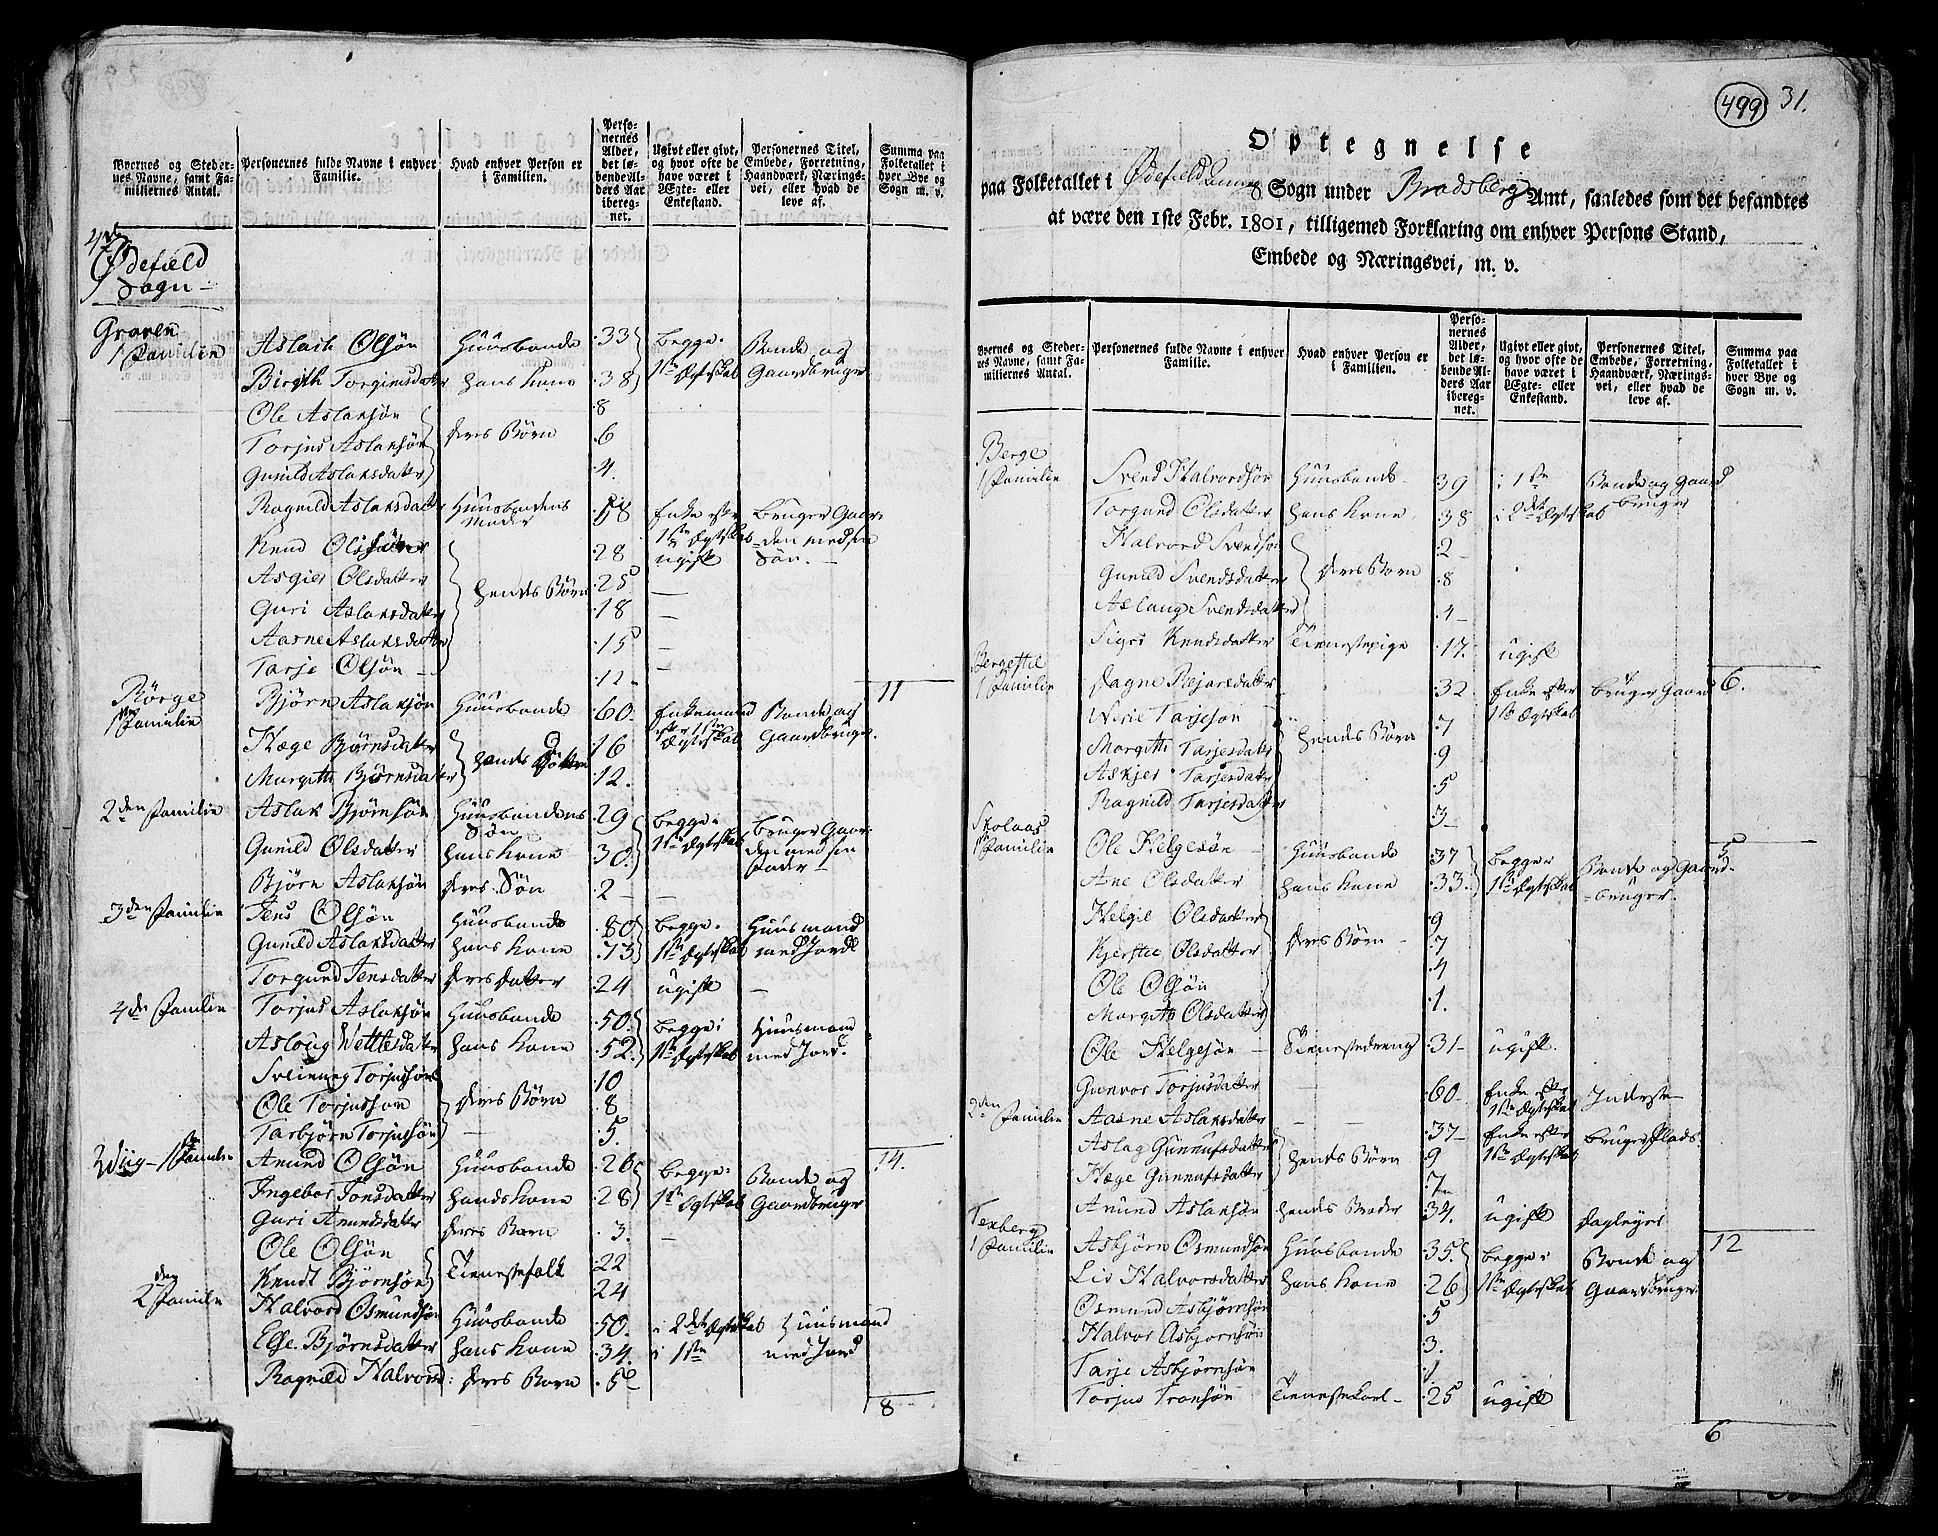 Byernes og Steder-
nes Navne, samt Fa-
miliernes Antal.
Personernes fulde Navne i enhver
Familie.
Hvad enhver Person er
i Familien.
Perso-
nernes
Alder,
det lø-
bende Al-
ders Aar
iibereg-
net.
Ugivt eller givt,
og hvor ofte de
have været i
Ægte- eller
Enkestand.
Personernes Titel,
Embede, Forretning,
Haandværk, Nærings-
vei, eller hvad de
leve af.
Summa paa
Folketallet i
hver Bye og
Sogn m. v.
4de
Ødefield
Sogn
Graven
1 Familie Aslach Olsøn Huusbonde 33 begge i Bonde og
Birgith Torgimsdatter hans Kone 38 1ste Ægteskab Gaardbruger
Ole Aslaksøn 8
Torjus Aslaksøn deres Børn 6
Gunild Aslaksdatter 4.
Ragnild Aslaksdatter Huusbondens Moder 58 Enke efter 1ste Ægteskab bruger Gaar-
den med sin Søn.
Knud Olsøn 28 ugift
Asgier Olsdatter hendes Børn 25 —
Guri Aslaksdatter 18 —
Aasne Aslaksdatter 15 —
Tarje Olsøn 12 —
11
Børge
1ste Familie Bjørn Aslaksøn Huusbonde 60. Enkemand efter 1ste Ægteskab Bonde og Gaardbruger.
Hæge Bjørnsdatter hands Døttre 16
Margithe Bjørnsdatter 12.
2den Familie Aslak Bjørnsøn Huusbondens Søn 29 begge i bruger Gaar-
Gunild Olsdatter hans Kone 30 1ste Ægteskab den med sin Fader —
Bjørn Aslaksøn deres Søn 2 —
3den Familie Jens Olsøn Huusbonde 80 begge i Huusmand
Gunild Aslaksdatter hans Kone 73 1ste Ægteskab med Jord
Torgund Jensdatter deres datter 24 ugift —
4de Familie Torjus Aslaksøn Huusbonde 50. begge i Huusmand
Asloug Wettlesdatter hans Kone 52. 1ste Ægteskab med Jord.
Sveinung Torjussøn 10
Ole Torjussøn deres Børn 8
Tarbjørn Torjussøn 5.
14.
Wiig — 1ste Familie Amund Olsøn Huusbonde 26 begge i Bonde og
Ingebor Tonsdatter hands Kone 28 1ste Ægteskab Gaardbruger
Guri Amundsdatter deres Barn 3. —
Ole Olsøn 22
Knudt Bjørnsøn Tienestefolk 24
2den Familie Halvord Osmundsøn Huusbonde 50. i 2det Ægteskab Huusmand
Else Bjørnsdatter hans Kone 34. i 1ste med Jord
Ragnild Halvorsd: deres Barn 5
8
499 31.
Optegnelse
paa Folketallet i Ødefield Sogn under Bradsberg Amt, saaledes som det befandtes
at være den 1ste Febr. 1801, tilligemed Forklaring om enhver Persons Stand,
Embede og Næringsvei, m. v.
Byernes og Steder-
nes Navne, samt Fa-
miliernes Antal.
Personernes fulde Navne i enhver
Familie.
Hvad enhver Person er
i Familien.
Perso-
nernes
Alder,
det lø-
bende Al-
ders Aar
ibereg-
net.
Ugivt eller givt,
og hvor ofte de
have været i
Ægte- eller
Enkestand.
Personernes Titel,
Embede, Forretning,
Haandværk, Nærings-
vei, eller hvad de
leve af.
Summa paa
Folketallet i
hver Bye og
Sogn m. v.
Berge
1 Familie Svend Halvordsøn Huusbonde 39 i 1ste Bonde og Gaard
Torgund Olsdatter hans Kone 38 i 2det Ægteskab bruger
Halvord Svendsøn 2
Gunild Svendsdatter deres Børn 8
Aslaug Svendsdatter 4
Sigri Knudsdatter Tienestepige 17. ugift
6.
Bergestil
1 Familie Dagne Rejarsdatter 32. Enke efter 1ste Ægteskab bruger Gaard
Tarjesøn 7
Margithe Tarjesdatter hendes Børn 9
Askjer Tarjesdatter 5
Ragnild Tarjesdatter 3
5
Skolaas
1ste Familie Ole Helgesøn Huusbonde 37 begge i Bonde og Gaard-
Ane Olsdatter hans Kone 33. 1ste Ægteskab bruger.
Helgie Olsdatter 9
Kjerstie Olsdatter deres Børn 7
Ole Olsøn 4
Margith Olsdatter 1.
Ole Helgesøn Tienestedreng 31 ugift.
Gunvor Torjusdatter — 60 Enke efter 1ste Ægteskab Inderste
2den Familie Aasne Aslaksdatter — 37 Enke efter 1ste Ægteskab bruger Plads.
Aslag Gunnufsdatter hendes Børn 9
Hæge Gunnufsdatter 7
Amund Aslaksøn hendes Broder 34. ugift dagleyer
12
Texberg
1 Familie Asbjørn Osmundsøn Huusbonde 35. begge i Bonde og
Liv Halvorsdatter hans Kone 26 1ste Ægteskab Gaardbruger
Osmund Asbjørnsøn 5
Halvor Asbjørnsøn 3.
Tarje Asbjørnsøn 1
Torjus Tronsøn Tienestekarl 25 ugift
6